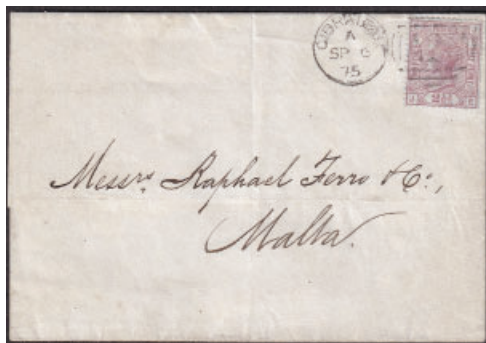 GIBRALTAR
A
SP
75
Messrs. Raphael Ferro & Co.,
Malta.